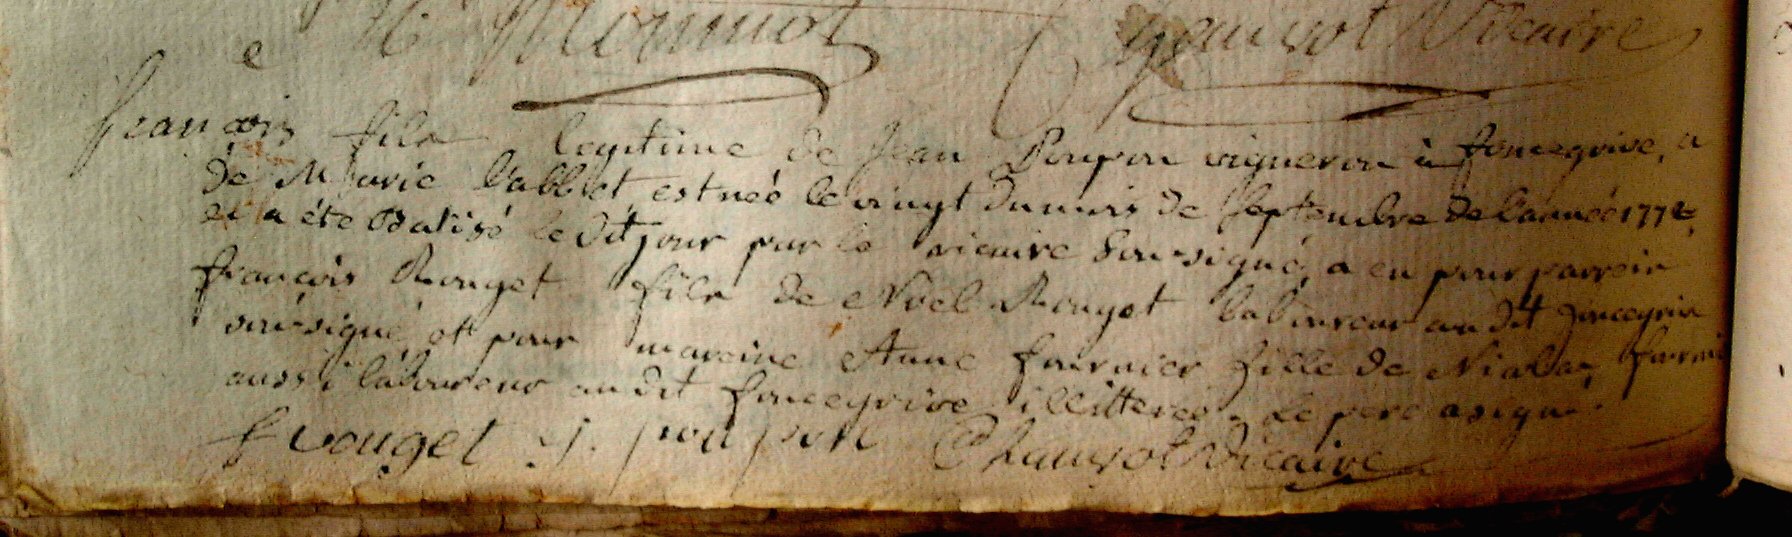 Monniot Chauvot Vicaire
françois fils legitime de Jean Poupon vigneron à foncegrive, et
de Marie est neé le vingt du mois de septembre de l'année 177
et a été batisé le dit jour par le vicaire sousigné, a eu pour parrein
françois Rouget fils de Noël Rouget laboureur au dit foncegrive
sousigné, et pour mareine Anne fournier fille de
aussi laboureur au dit foncegrive illitterée. Le pere a signé.
f rouget J. poupon Chauvot Vicaire